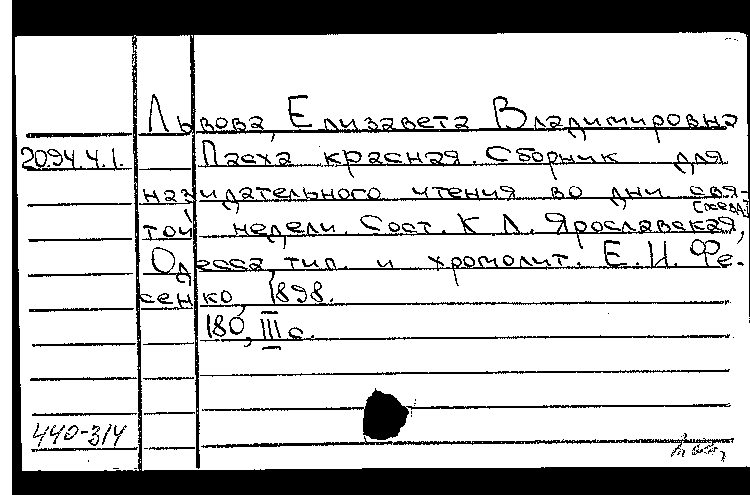 Львова, Елизавета Владимировна
2094.4.1. Пасха красная. Сборник для
назидательного чтения во дни свя-
той недели. Сост. К Л. Ярославская,
Одесса, тип. и хромолит. Е.И. Фе-
сенко, 1898.
180, III с.
440-314